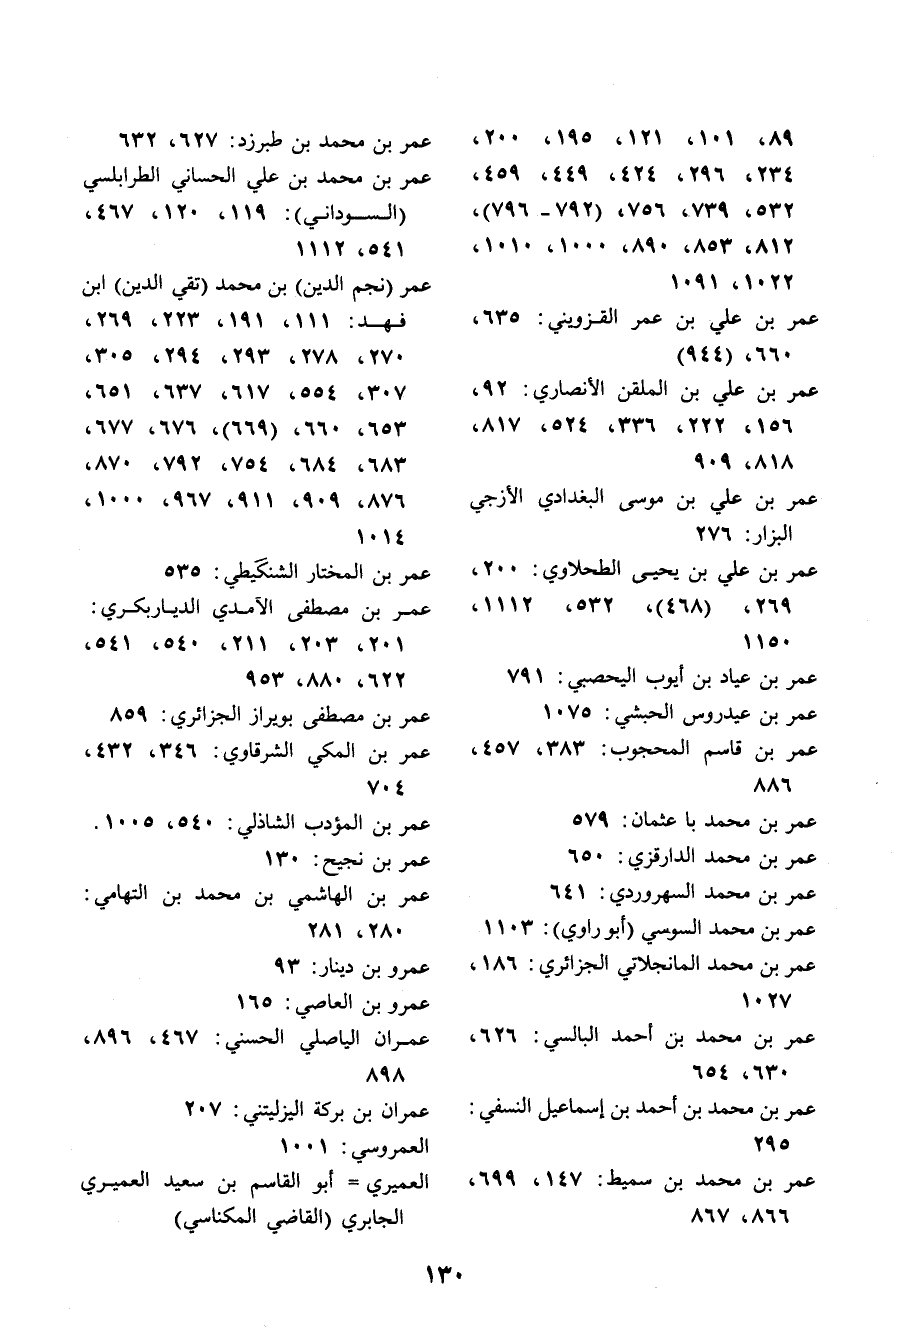 ٨٩، ١٠١، ١٢١، ١٩٥، ٢٠٠،
٢٣٤، ٢٩٦، ٤٢٤، ٤٤٩، ٤٥٩،
٥٣٢، ٧٣٩، ٧٥٦، (٧٩٢ـ ٧٩٦)،
٨١٢، ٨٥٣، ٨٩٠، ١٠٠٠، ١٠١٠،
١٠٢٢، ١٠٩١
عمر بن علي بن عمر القزويني: ٦٣٥،
٦٦٠، (٩٤٤)
عمر بن علي بن الملقن الأنصاري: ٩٢،
١٥٦، ٢٢٢، ٣٣٦، ٥٢٤، ٨١٧،
٨١٨، ٩٠٩
عمر بن علي بن موسى البغدادي الأزجي
البزار: ٢٧٦
عمر بن علي بن يحيى الطحلاوي: ٢٠٠،
٢٦٩، (٤٦٨)، ٥٣٢، ١١١٢،
١١٥٠
عمر بن عياد بن أيوب اليحصبي: ٧٩١
عمر بن عيدروس الحبشي: ١٠٧٥
عمر بن قاسم المحجوب: ٣٨٣، ٤٥٧،
٨٨٦
عمر بن محمد با عثمان: ٥٧٩
عمر بن محمد الدارقزي: ٦٥٠
عمر بن محمد السهروردي: ٦٤١
عمر بن محمد السوسي (أبو راوي): ١١٠٣
عمر بن محمد المانجلاتي الجزائري: ١٨٦،
١٠٢٧
عمر بن محمد بن أحمد البالسي: ٦٢٦،
٦٣٠، ٦٥٤
عمر بن محمد بن أحمد بن إسماعيل النسفي:
٢٩٥
عمر بن محمد بن سميط: ١٤٧، ٦٩٩،
٨٦٦، ٨٦٧
عمر بن محمد بن طبرزد: ٦٢٧، ٦٣٢
عمر بن محمد بن علي الحساني الطرابلسي
(السوداني): ١١٩، ١٢٠، ٤٦٧،
٥٤١، ١١١٢
عمر (نجم الدين) بن محمد (تقي الدين) ابن
فهد: ١١١، ١٩١، ٢٢٣، ٢٦٩،
٢٧٠، ٢٧٨، ٢٩٣، ٢٩٤، ٣٠٥،
٣٠٧، ٥٥٤، ٦١٧، ٦٣٧، ٦٥١،
٦٥٣، ٦٦٠، (٦٦٩)، ٦٧٦، ٦٧٧،
٦٨٣، ٦٨٤، ٧٥٤، ٧٩٢، ٨٧٠،
٨٧٦، ٩٠٩، ٩١١، ٩٦٧، ١٠٠٠،
١٠١٤
عمر بن المختار الشنگيطي: ٥٣٥
عمر بن مصطفى الآمدي الدياربكري:
٢٠١، ٢٠٣، ٢١١، ٥٤٠، ٥٤١،
٦٢٢، ٨٨٠، ٩٥٣
عمر بن مصطفى بويراز الجزائري: ٨٥٩
عمر بن المكي الشرقاوي: ٣٤٦، ٤٣٢،
٧٠٤
عمر بن المؤدب الشاذلي: ٥٤٠، ١٠٠٥.
عمر بن نجيح: ١٣٠
عمر بن الهاشمي بن محمد بن التهامي:
٢٨٠، ٢٨١
عمرو بن دينار: ٩٣
عمرو بن العاصي: ١٦٥
عمران الياصلي الحسني: ٤٦٧، ٨٩٦،
٨٩٨
عمران بن بركة اليزليتني: ٢٠٧
العمروسي: ١٠٠١
العميري = أبو القاسم بن سعيد العميري
الجابري (القاضي المكناسي)
١٣٠